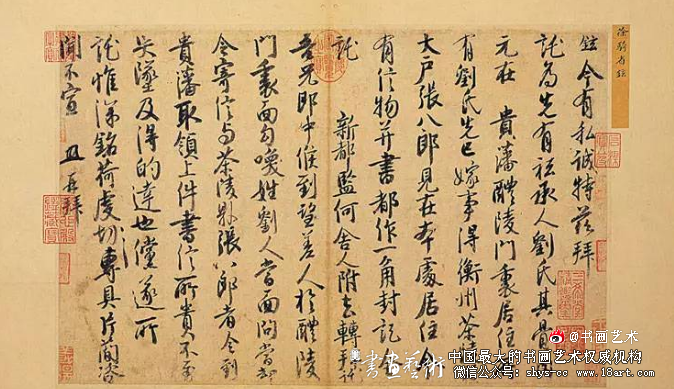 徐騎省鉉
鉉今有私誠特茲拜
託為先有祗承人劉氏其骨肉
元在 貴藩醴陵門裏居住所
有劉氏先已嫁事得衡州茶陵
大户張八郎見在本處居住今
有信物并書都作一角封記
託 新都監何舍人附去轉拜
吾兄郎中候到望差人於醴陵
門裏面勾喚姓劉人當面問當却
令寄信与茶陵縣張八郎者令到
貴藩取領上件書信所貴不至
失墜及得的達也儻遂所
託惟深銘荷虔切專具片簡咨
聞不宣 再拜
書畫藝術
@书画艺术
中国最大的书画艺术权威机构
微信公众号:shys-cc www.18art.com